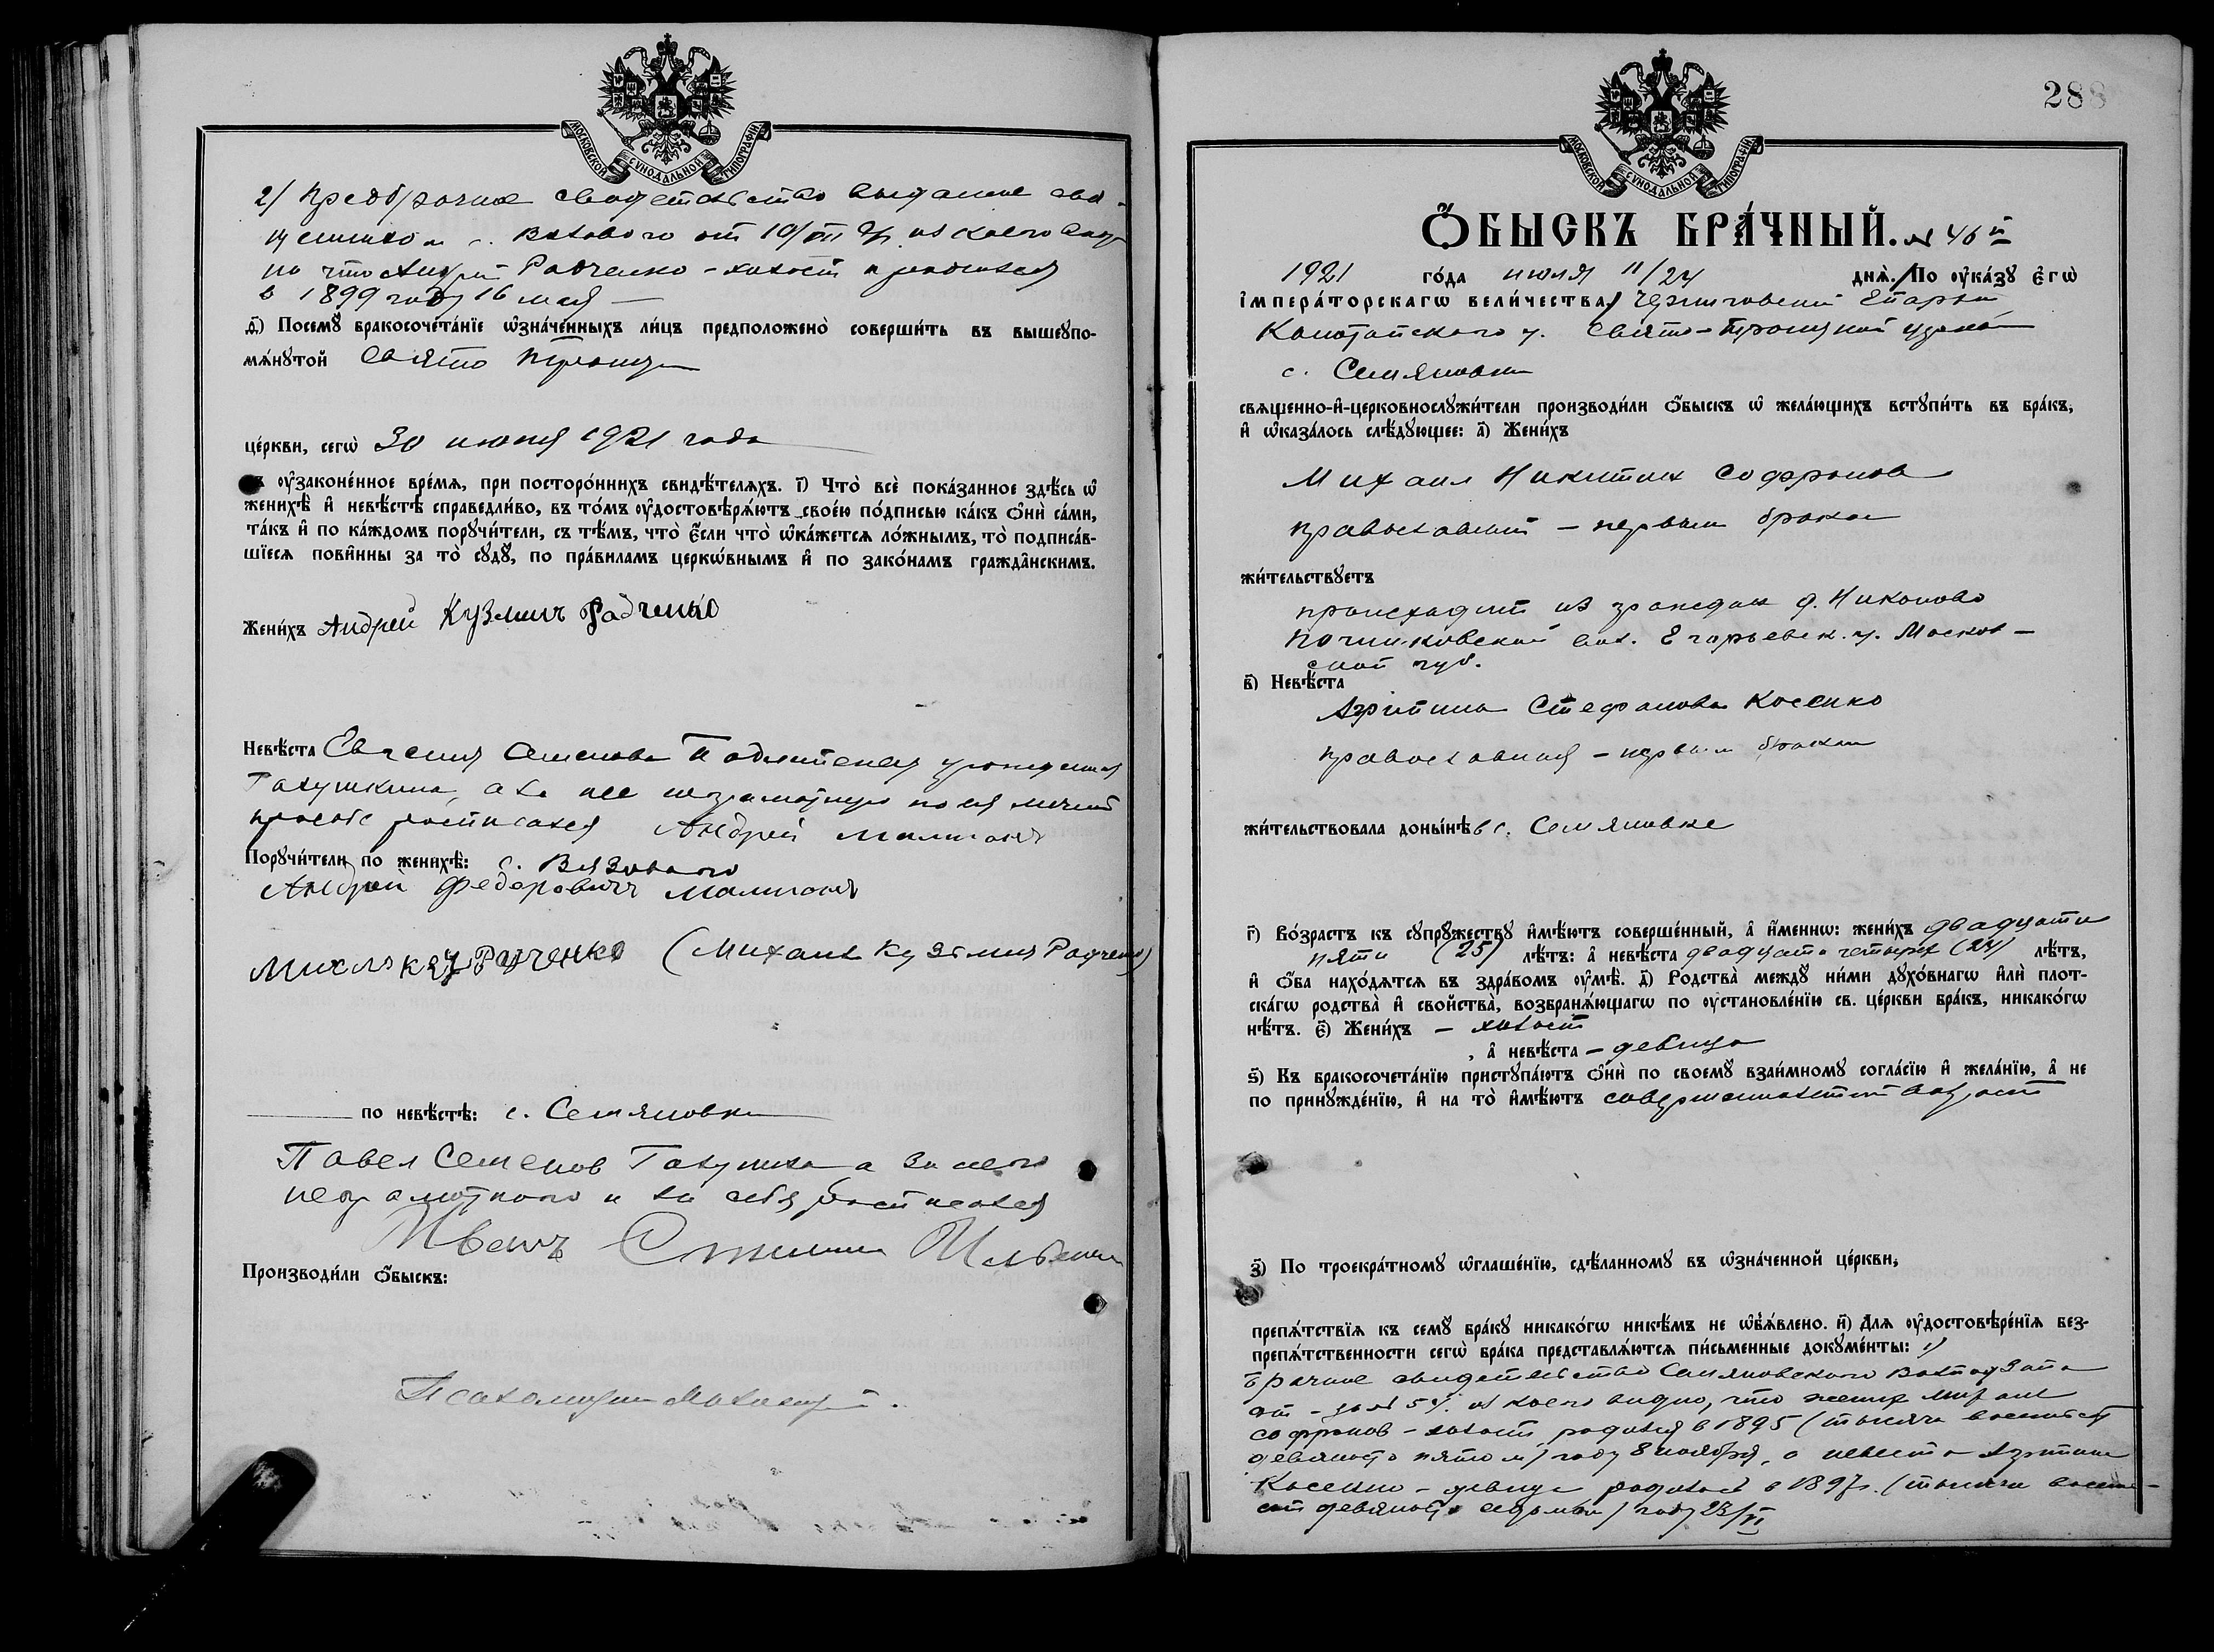 МОСКОВСКОЙ СѴНОДАЛЬНОЙ ТИПОГРАФІИ
2) Предбрачное свидетельство выданное свя-
щенником с. Вязового от 10/VII из коего вид-
но что Андрей Радченко - холост и родился
в 1899 году 16 мая
Посемꙋ̀ бракосочета́нїе ѡ҆зна́ченныхъ ли́цъ предположено̀ соверши́ть въ вышеупо-
мѧ́нꙋтой Свято Троицкой
це́ркви, сегѡ̀ 30 июня 1921 года
въ ᲂу҆законе́нное вре́мѧ, при посторо́ннихъ свидѣ́телѧхъ. і҃) Что̀ всѐ пока́занное здѣ́сь ѡ҆
женихѣ̀ и҆ невѣ́стѣ справедли́во, въ то́мъ ᲂу҆достовѣрѧ́ютъ свое́ю по́дписью ка́къ ѻ҆нѝ са́ми,
та́къ и҆ по ка́ждомъ порꙋчи́тели, съ тѣ́мъ, что̀ є҆́сли что̀ ѡ҆ка́жетсѧ ло́жнымъ, то̀ подписа́в-
шїесѧ пови́нны за то̀ сꙋдꙋ̀, по пра́виламъ церкѡ́внымъ и҆ по зако́намъ гражда̑нскимъ.
Жени́хъ Андрей Кузмич Радченко
Невѣ́ста Евгения Семенова урожденная
Галушкина, а за нее неграмотную по ея личной
просьбе росписался Андрей
Порꙋчи́тели по женихѣ̀: с. Вязового
Андрей Федорович
Радченко (Михаил Кузьмич Радченко)
по невѣ́стѣ: с. Семяновки
Павел Семенов Галушка а за него
неграмотного и за себя росписался
Иванъ
Производи́ли ѻ҆́быскъ:
Псаломщик
288
МОСКОВСКОЙ СѴНОДАЛЬНОЙ ТИПОГРАФІИ
Ѻ҆БЫСКЪ БРА́ЧНЫЙ. № 46й
1921 го́да июля 11/24 днѧ̀. / По ᲂу҆ка́зꙋ є҆гѡ̀
і҆мпера́торскагѡ вели́чества / Черниговской Епархии
Конотопского у. Свято-Троицкой церкви
с. Семяновки
свѧще́нно-и҆-церковнослꙋжи́тели производи́ли ѻ҆́быскъ ѡ҆ жела́ющихъ встꙋпи́ть въ бра́къ,
и҆ ѡ҆каза́лось слѣ́дꙋющее: а҃) Жени́хъ
Михаил Никитич Софронов
православный - первым браком
жи́тельствꙋетъ
происходит из граждан д. Никоново
вол. Егорьевск. у. Москов-
ской губ.
в҃) Невѣ́ста
Агрипина Стефанова Косенко
православная - первым браком
жи́тельствовала доны́нѣ в с. Семяновке
г҃) Во́зрастъ къ сꙋпрꙋ́жествꙋ и҆мѣ́ютъ соверше́нный, а҆ и҆́менно: жени́хъ двадцати
пяти (25) лѣ́тъ: а҆ невѣ́ста двадцати четырех (24) лѣ́тъ,
и҆ ѻ҆́ба нахо́дѧтсѧ въ здра́вомъ ᲂу҆мѣ̀. д҃) Родства̀ междꙋ̀ ни́ми дꙋхо́внагѡ и҆лѝ плот-
ска́гѡ родства̀ и҆ свойства̀, возбранѧ́ющагѡ по ᲂу҆становле́нїю св. це́ркви бра́къ, никако́гѡ
нѣ́тъ. є҃) Жени́хъ - холост
, а҆ невѣ́ста - девица
ѕ҃) Къ бракосочета́нїю пристꙋпа́ютъ ѻ҆нѝ по своемꙋ̀ взаи́мномꙋ согла́сїю и҆ жела́нїю, а҆ не
по принꙋжде́нїю, и҆ на то̀ и҆мѣ́ютъ совершеннолетний возраст
з҃) По троекра́тномꙋ ѡ҆глаше́нїю, сдѣ́ланномꙋ въ ѡ҆зна́ченной це́ркви,
препѧ́тствїѧ къ семꙋ̀ бра́кꙋ никако́гѡ никѣ́мъ не ѡ҆б̾ѧ́влено. и҃) Длѧ ᲂу҆достовѣре́нїѧ без-
препѧ́тственности сегѡ̀ бра́ка представлѧ́ютсѧ пи́сьменные докꙋме́нты: 1)
Брачное свидетельство Семяновского Волподзага
от - за № 54. из коего видно, что жених Михаил
Софронов - холост родился в 1895 (тысяча восемьсот
девяносто пятом) году 8 ноября, а невеста Агрипина
Косенко - девица родилась в 1897г. (тысяча восемь-
сот девяносто седьмом) году 23/VI